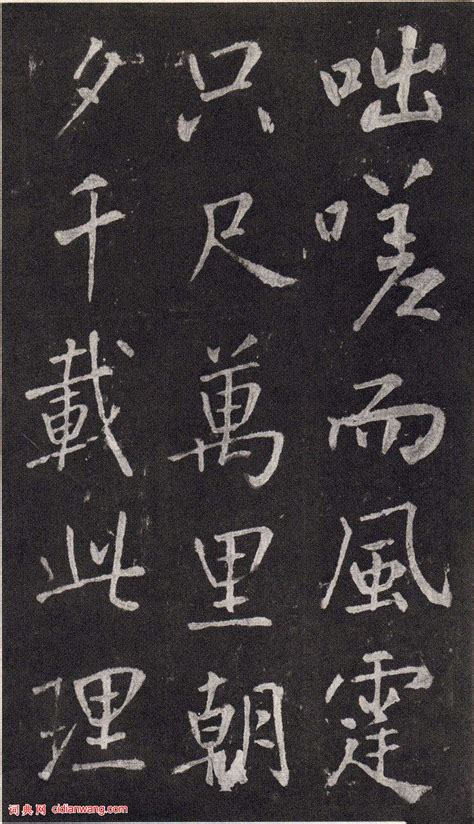 咄嗟而風霆
只尺萬里朝
夕千載此理
词典网 cidianwang.com